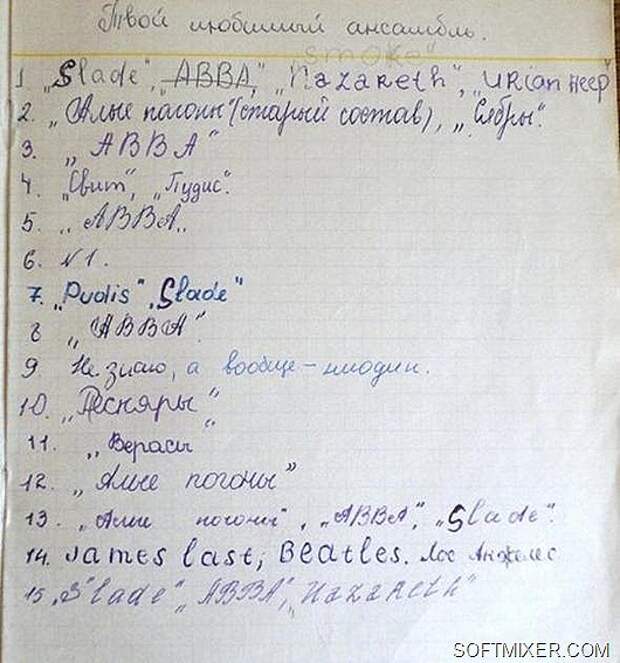 Твой любимый ансамбль.
Smoke"
1 „Slade", „ABBA", „Nazareth", „URian HEEP"
2. „Алые погоны"(старый состав), „Сябры".
3. „ABBA"
4. „Свит", „Пудис".
5. „ABBA„
6. N1.
7. „Pudis", Slade"
8 „ABBA".
9. Не знаю, а вообще – ниодин.
10. „Песняры"
11. „Верасы"
12. „Алые погоны"
13. „Алые погоны", „ABBA", „Slade".
14. James last, Beatles. Лос Анжелес
15 „Slade", „ABBA", „Nazareth"
SOFTMIXER.COM